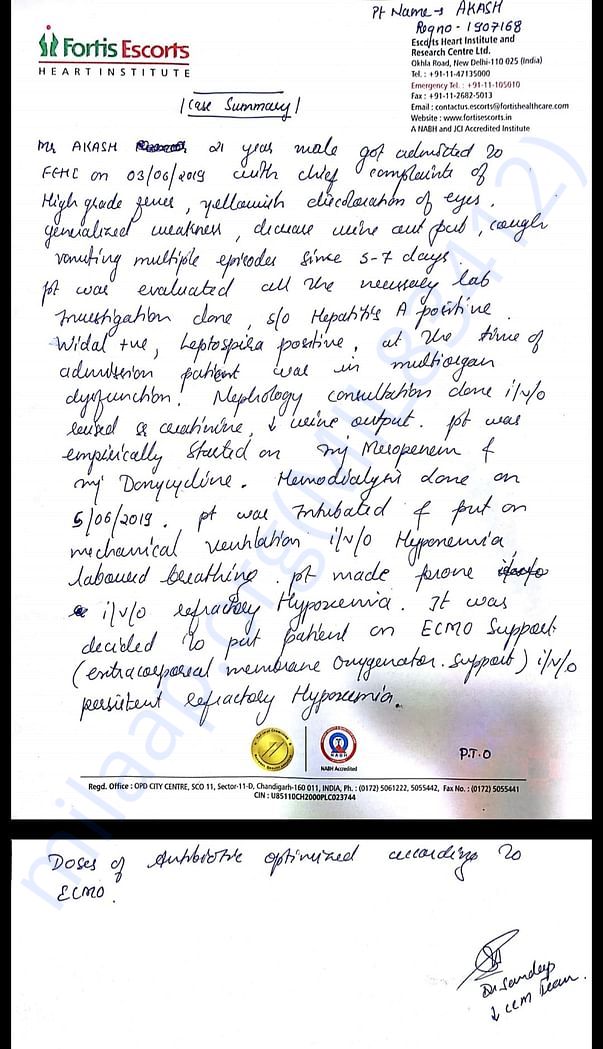 Pt Name → AKASH
Regno - 1907168
Fortis Escorts
HEART INSTITUTE
Escorts Heart Institute and
Research Centre Ltd.
Okhla Road, New Delhi-110 025 (India)
Tel. : +91-11-47135000
Emergency Tel. : +91-11-105010
Fax : +91-11-2682-5013
Email : contactus.escorts@fortishealthcare.com
Website : www.fortisescorts.in
A NABH and JCI Accredited Institute
Case Summary
Mr AKASH 21 year male got admitted to
FEHI on 03/06/2019 with chief complaints of
High grade fever, yellowish discoloration of eyes.
generalized weakness, decrease urine out put, cough
vomiting multiple episodes since 5-7 days.
pt was evaluated all the necessary lab
Investigation done, s/o Hepatitis A positive.
Widal +ve, Leptospira positive, at the time of
admission patient was in multiorgan
dysfunction. Nephrology consultation done i/v/o
creatinine, ↓ urine output. pt was
empirically started on inj Meropenem &
inj Doxycycline. Hemodialysis done on
5/06/2019. pt was Intubated & put on
mechanical ventilation i/v/o Hypoxemia
laboured breathing. pt made prone
i/v/o refractory Hypoxemia. It was
decided to put patient on ECMO Support
(extracorporeal membrane oxygenator. Support) i/v/o
persistent refractory Hypoxemia.
NABH Accredited
P.T.O
Regd. Office : OPD CITY CENTRE, SCO 11, Sector-11-D, Chandigarh-160 011, INDIA, Ph. : (0172) 5061222, 5055442, Fax No. : (0172) 5055441
CIN : U85110CH2000PLC023744
Doses of Antibiotic optimized according to
ECMO.
Dr Sandeep
↓ CCM Team.
milaap.org(MIL83412)